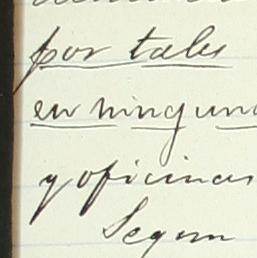 por tales
en ningun
y oficinas
Segun